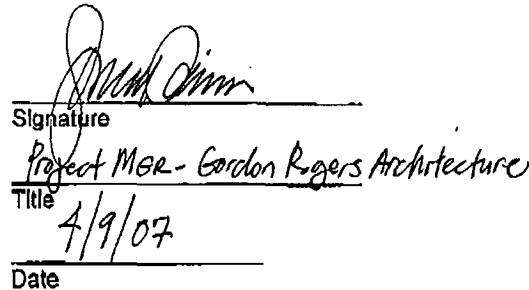 Signature
Project MGR - Gordon Rogers Architecture
Title
4/9/07
Date